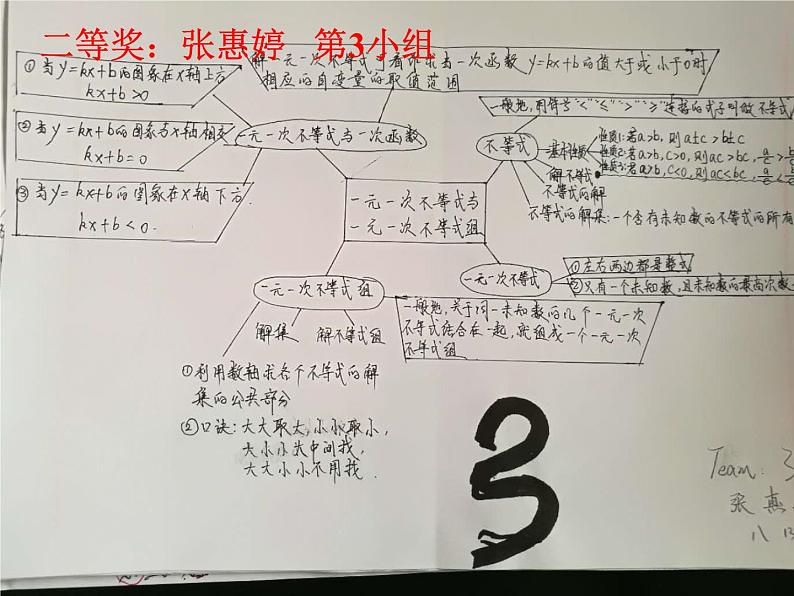 二等奖：张惠婷 第3小组
①当y=kx+b的图象在x轴上方
kx+b>0
②当y=kx+b的图象与x轴相交
kx+b=0
③当y=kx+b的图象在x轴下方.
kx+b<0.
解一元一次不等式可看作求当一次函数y=kx+b的值大于或小于0时
相应的自变量的取值范围
一元一次不等式与一次函数
一元一次不等式与
一元一次不等式组
不等式
一般地,用符号"<""≤"">""≥"连接的式子叫做不等式
基本性质
性质1:若a>b,则a±c>b±c
性质2:若a>b,c>0,则ac>bc,
性质3:若a>b,c<0,则ac<bc,
解不等式
不等式的解
不等式的解集:一个含有未知数的不等式的所有
一元一次不等式
①左右两边都是整式
②只有一个未知数,且未知数的最高次数
一元一次不等式组
一般地,关于同一未知数的几个一元一次
不等式结合在一起,就组成一个一元一次
不等式组
解集
解不等式组
①利用数轴求各个不等式的解
集的公共部分
②口诀:大大取大,小小取小,
大小小大中间找,
大大小小不用找.
3
Team:
张惠
八